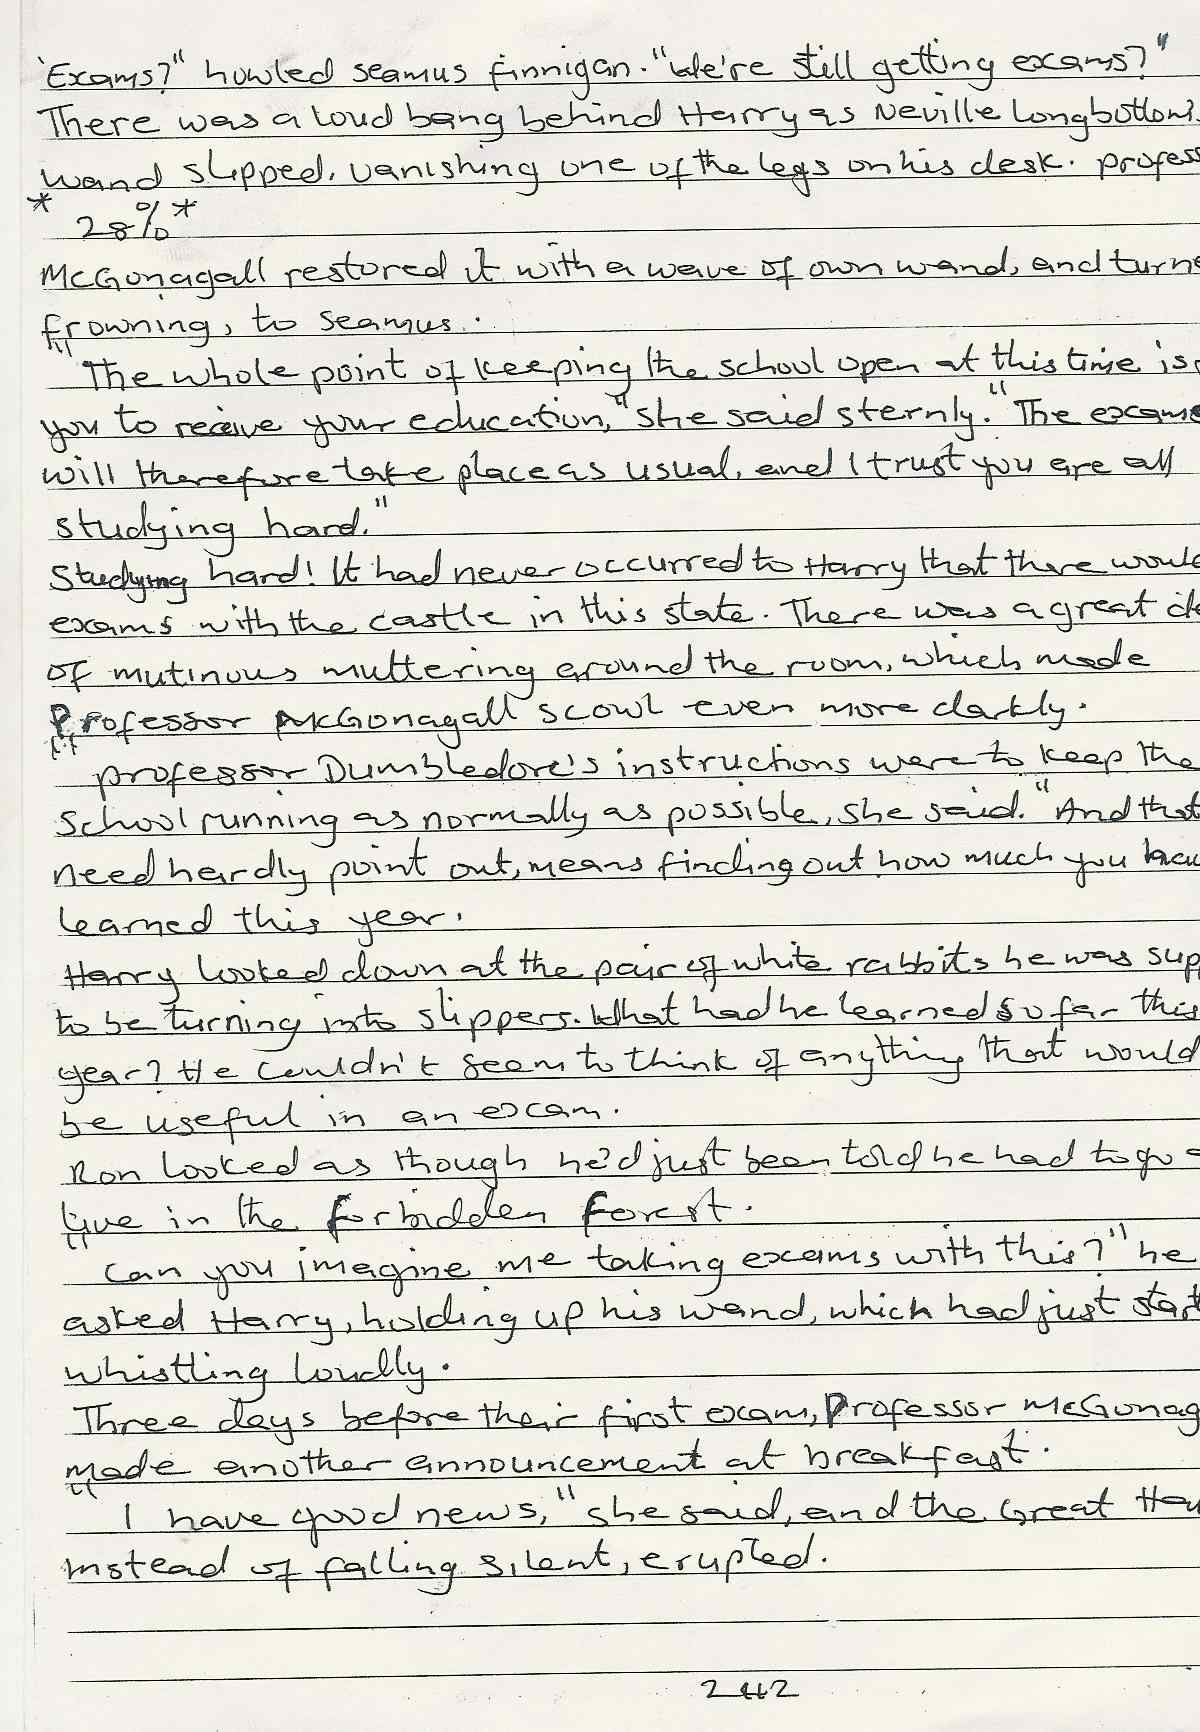 'Exams?" howled seamus finnigan. "We're still getting exams?"
There was a loud bang behind Harry as Neville Longbottom's
wand slipped, vanishing one of the legs on his desk. profess
* 28% *
McGonagall restored it with a wave of own wand, and turne
frowning, to seamus.
"The whole point of keeping the school open at this time is
you to receive your education," she said sternly. "The exams
will therefore take place as usual, and I trust you are all
studying hard."
Studying hard! It had never occurred to Harry that there would
exams with the castle in this state. There was a great de
of mutinous muttering around the room, which made
Professor McGonagall scowl even more darkly.
"professor Dumbledore's instructions were to keep the
School running as normally as possible, she said. "And that
need hardly point out, means finding out how much you have
learned this year.
Harry looked down at the pair of white rabbits he was supp
to be turning into slippers. What had he learned so far this
year? He couldn't seem to think of anything that would
be useful in an exam.
Ron looked as though he'd just been told he had to go a
live in the forbidden forest.
"Can you imagine me taking exams with this?" he
asked Harry, holding up his wand, which had just start
whistling loudly.
Three days before their first exam, Professor McGonag
made another announcement at breakfast.
"I have good news," she said, and the Great Ha
instead of falling silent, erupted.
242